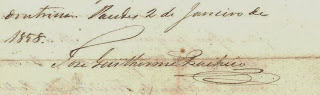 doutrina. Paredes 2 de Janeiro de
1858.
José Guilherme Pacheco